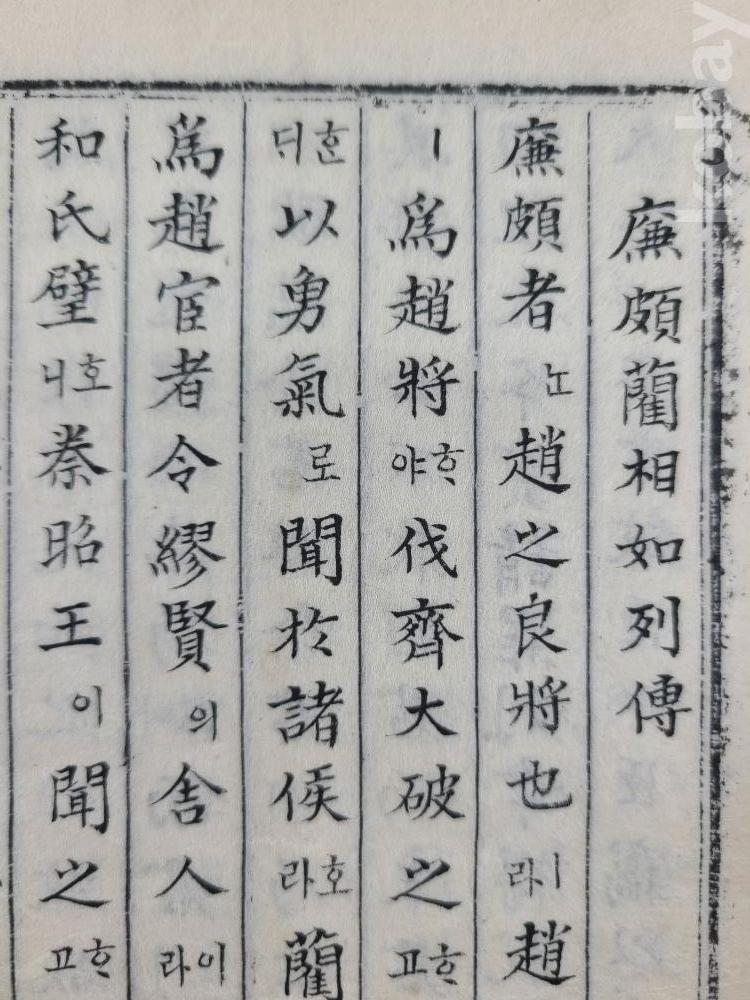 廉頗藺相如列傳
廉頗者ᄂᆞᆫ趙之良將也ㅣ라趙
ㅣ爲趙將ᄒᆞ야伐齊大破之ᄒᆞ고
ᄒᆞᆫᄃᆡ以勇氣로聞於諸侯호라藺
爲趙宦者令繆賢의舍人이라
和氏璧호니秦昭王이聞之ᄒᆞ고
kobay